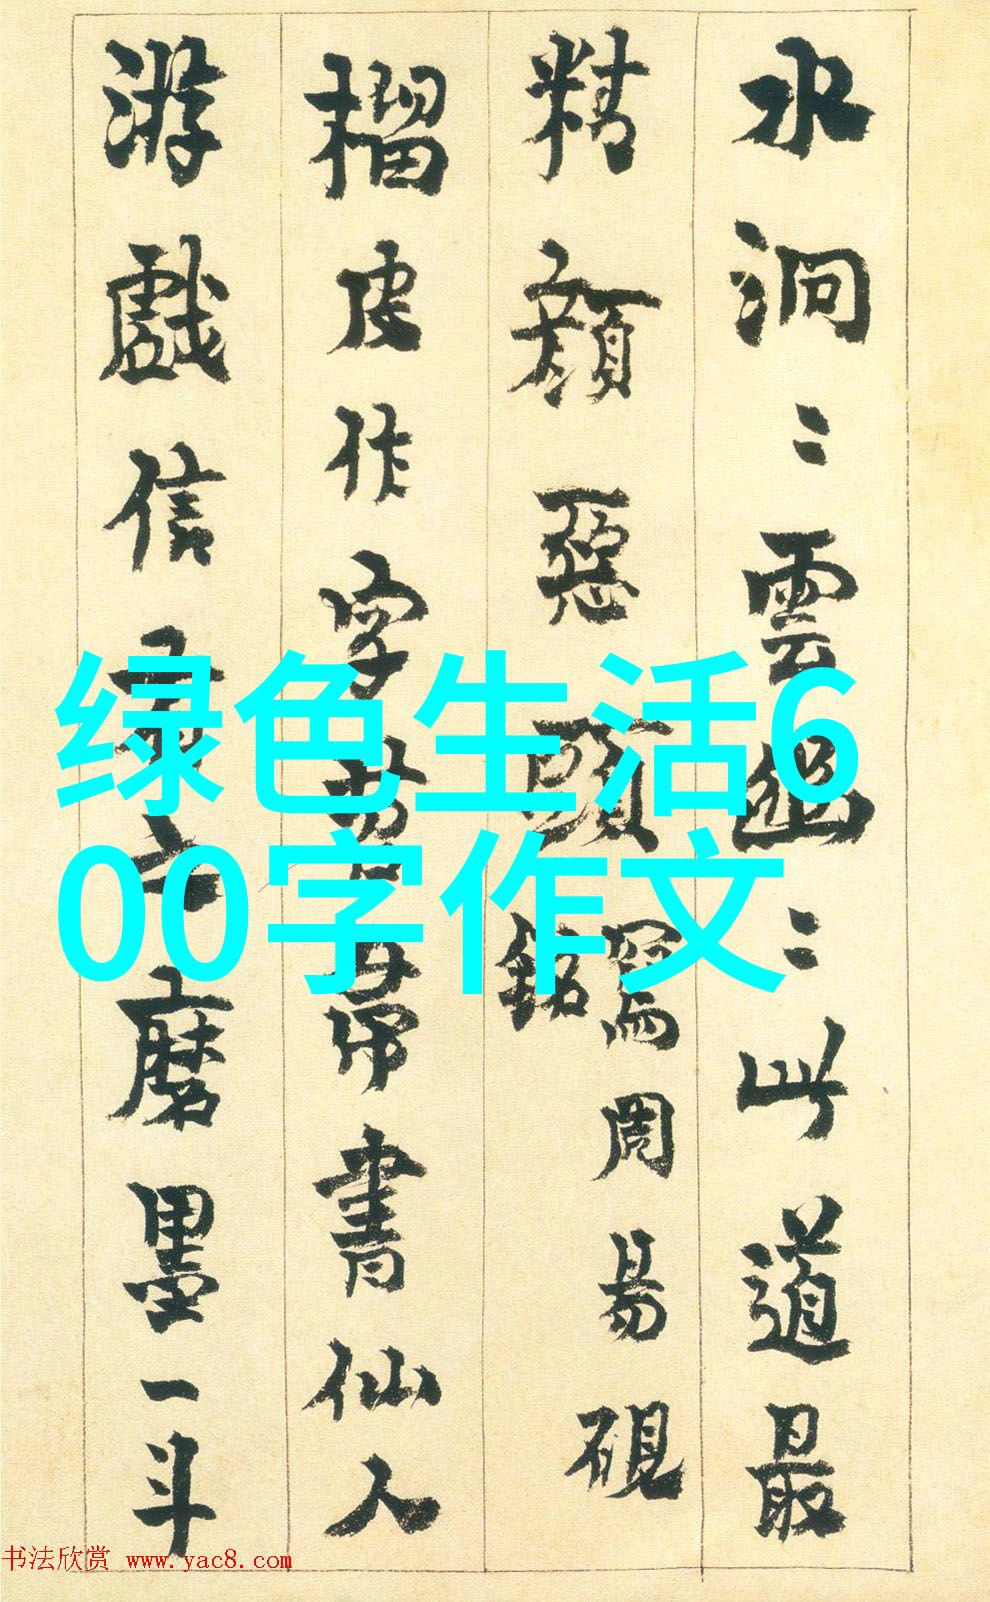 水泂〻雲幽〻此道最
精顏惡頭
寫周易硯
銘
榴皮作字苕帚書仙人
游戲信有之磨墨一斗
绿色生活6
00字作文
书法欣赏 www.yac8.com